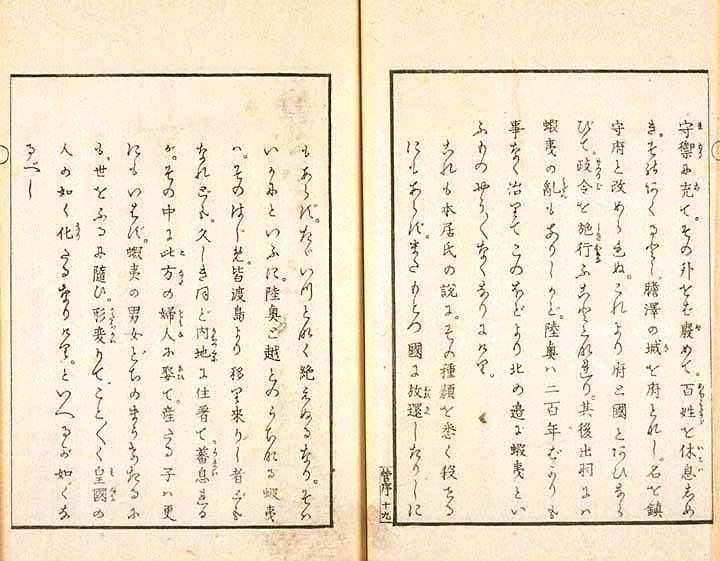 守禦に充て。その外をば廢めて。百姓を休息しめ
き。膽澤の城を府とれし。名を鎮
守府と改めらる。これより府と國とあひなら
びて。政令を施行ふことゝなれり。其後出羽には
蝦夷の亂もありしかど。陸奥ハ二百年ばかりも
事なく治りてこのほどより北の邊に蝦夷とい
ふものやうやくなくなりにけり。
これも本居氏の説に。その種類を悉く殺せる
にもあらず。またもとつ國に放還したりしに
序 十九
もあらず。たゞいつとなく絶えぬるなり。そは
いかにといふに。陸奥と越とのうちなる蝦夷
ハ。そのはじめ。皆渡島より移り來りし者ども
なれども。久しきほど内地に住着て蕃息まる
が。その中に此方の婦人に娶て。産たる子ハ更
にもいはず。蝦夷の男女どちのまうけたるに
も。世をふるに隨ひ。形変りて。ことごとく皇國の
人の如く化たるなりけり。といへるが如くな
るべし